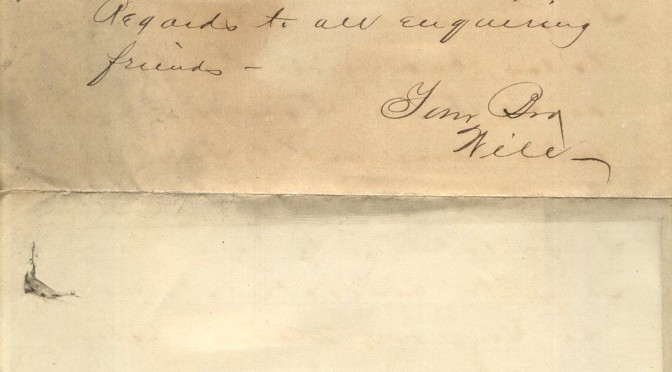 Regards to all enquiring
friends -
Your Bro
Will